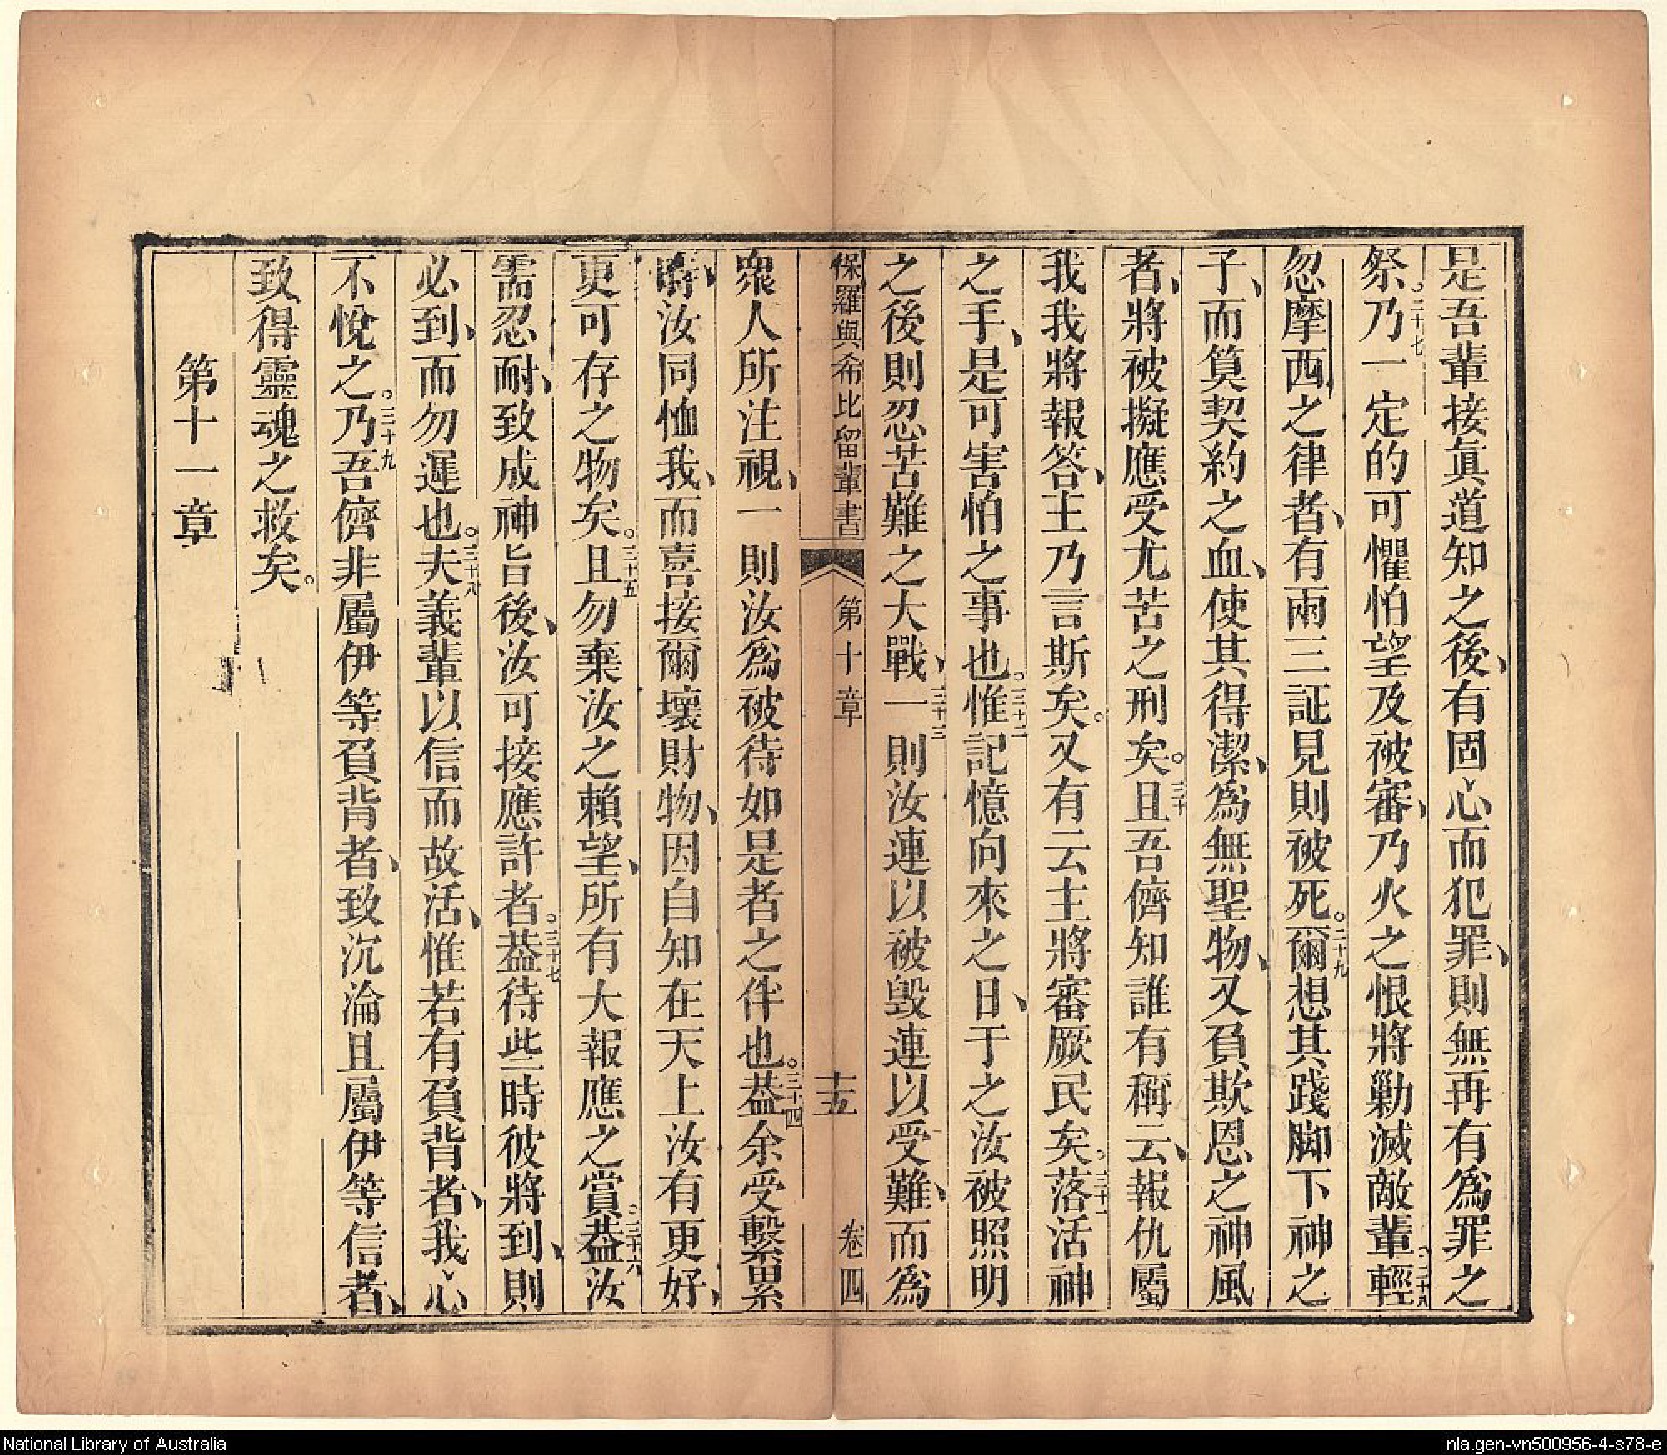 是吾輩接眞道知之後、有固心而犯罪、則無再有爲罪之
祭。二十七乃一定的可懼怕望及被審、乃火之恨將勦滅敵輩。二十八輕
忽摩西之律者、有兩三証見則被死。二十九爾想其踐脚下神之
子、而算契約之血、使其得潔、爲無聖物、又負欺恩之神風
者、將被擬應受尤苦之刑矣。三十且吾儕知誰有稱云、報仇屬
我我將報答、主乃言斯矣。又有云主將審厥民矣。三十一落活神
之手、是可害怕之事也。三十二惟記憶向來之日、于之汝被照明
之後則忍苦難之大戰、三十三一則汝連以被毀連以受難、而爲
保羅與希比留輩書 第十章 十五 卷四
衆人所注視、一則汝爲被待如是者之伴也。三十四葢余受繫累
時、汝同恤我、而喜接爾壞財物、因自知在天上汝有更好、
更可存之物矣。三十五且勿棄汝之賴望、所有大報應之賞。三十六葢汝
需忍耐、致成神旨後、汝可接應許者。三十七葢待些時彼將到、則
必到、而勿遲也。三十八夫義輩以信而故活、惟若有負背者、我心
不悅之。三十九乃吾儕非屬伊等負背者、致沉淪且屬伊等信者、
致得靈魂之救矣。
第十一章
National Library of Australia
nla.gen-vn500956-4-s78-e